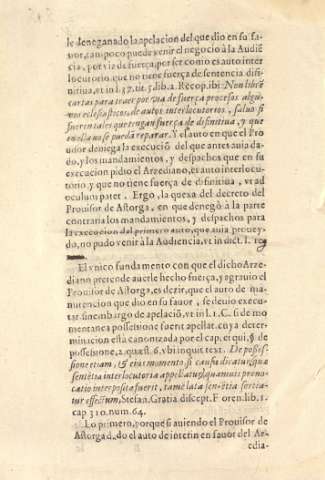 le deneganado la apelacion del que dio en su fa-
uor, tampoco puede venir el negocio à la Audiẽ
cia, por via de fuerça, por ser como es auto inter
locutorio, que no tiene fuerça de sentencia difi-
nitiua, et in l. 37. tit. 5. lib. 2. Recop. ibi: Non libre
cartas para traer por via de fuerça procesos algu-
nos eclesiasticos, de autos interlocutorios, saluo si
fueren tales que tengan fuerça de definitiua, y que
en ella no se pueda reparar. Y el auto en que el Pro
uisor deniega la execuciõ del que antes auia da-
do, y los mandamientos, y despachos que en su
execucion pidio el Arzediano, es auto interlocu-
torio, y que no tiene fuerça de difinitiua, vt ad
oculum patet. Ergo, la quexa del decreto del
Prouisor de Astorga, en que denegò à la parte
contraria los mandamientos, y despachos para
la execucion del primero auto, que auia prouey-
do, no pudo venir à la Audiencia, vt in dict. l. reg
El vnico fundamento con que el dicho Arze-
diano pretende auerle hecho fuerça, y agrauio el
Prouisor de Astorga, es dezir, que el auto de ma-
nutencion que dio en su fauor, se deuio execu-
tar sin embargo de apelaciõ, vt in l. 1. C. si de mo
mentanea possessione fuerit apellat. cuya deter-
minacion està canonizada por el cap. et qui, §. de
possessione, 2. quæst. 6. vbi inquit text. De posses-
sione etiam, & eius momento si causa dicatur, qua
sentẽtia interlocutoria appellatur, quamuis prouo-
catio interposita fuerit, tamẽ lata sentẽtia sortea-
tur effectum, Stefan. Gratia. discept. Foren. lib. 1.
cap 310. num. 64.
Lo primero, porque si auiendo el Prouisor de
Astorga dado el auto de interin en fauor del Ar-
zedia-